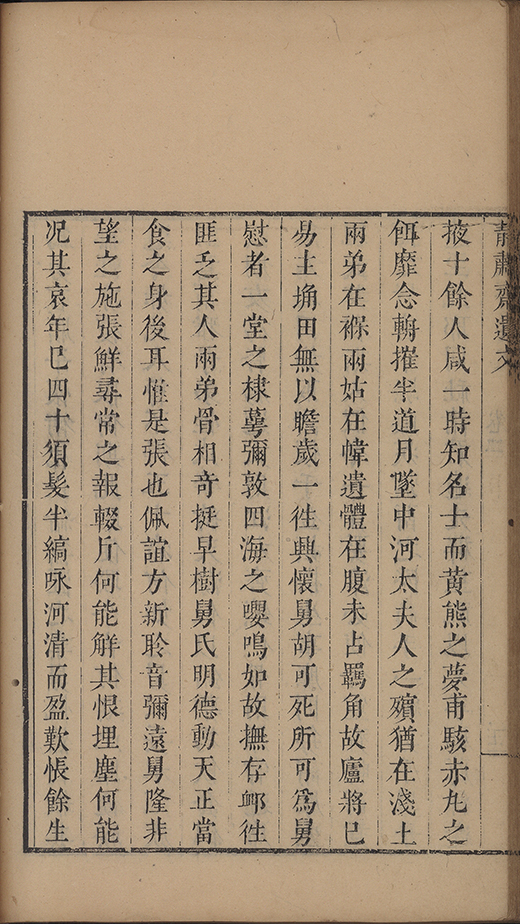 青蘿齋遺文
掖十餘人咸一時知名士而黄熊之夢甫駭赤丸之
餌靡念輈摧半道月墜中河太夫人之殯猶在淺土
兩弟在褓兩姑在幃遺體在腹未占羈角故廬將已
易主埆田無以贍歲一徃興懷舅胡可死所可爲舅
慰者一堂之棣萼彌敦四海之嚶鳴如故撫存䘏徃
匪乏其人兩弟骨相奇挺早樹舅氏明德動天正當
食之身後耳惟是張也佩誼方新聆音彌遠舅隆非
望之施張鮮尋常之報輟斤何能解其恨埋塵何能
况其哀年巳四十須髮半縞咏河清而盈歎悵餘生